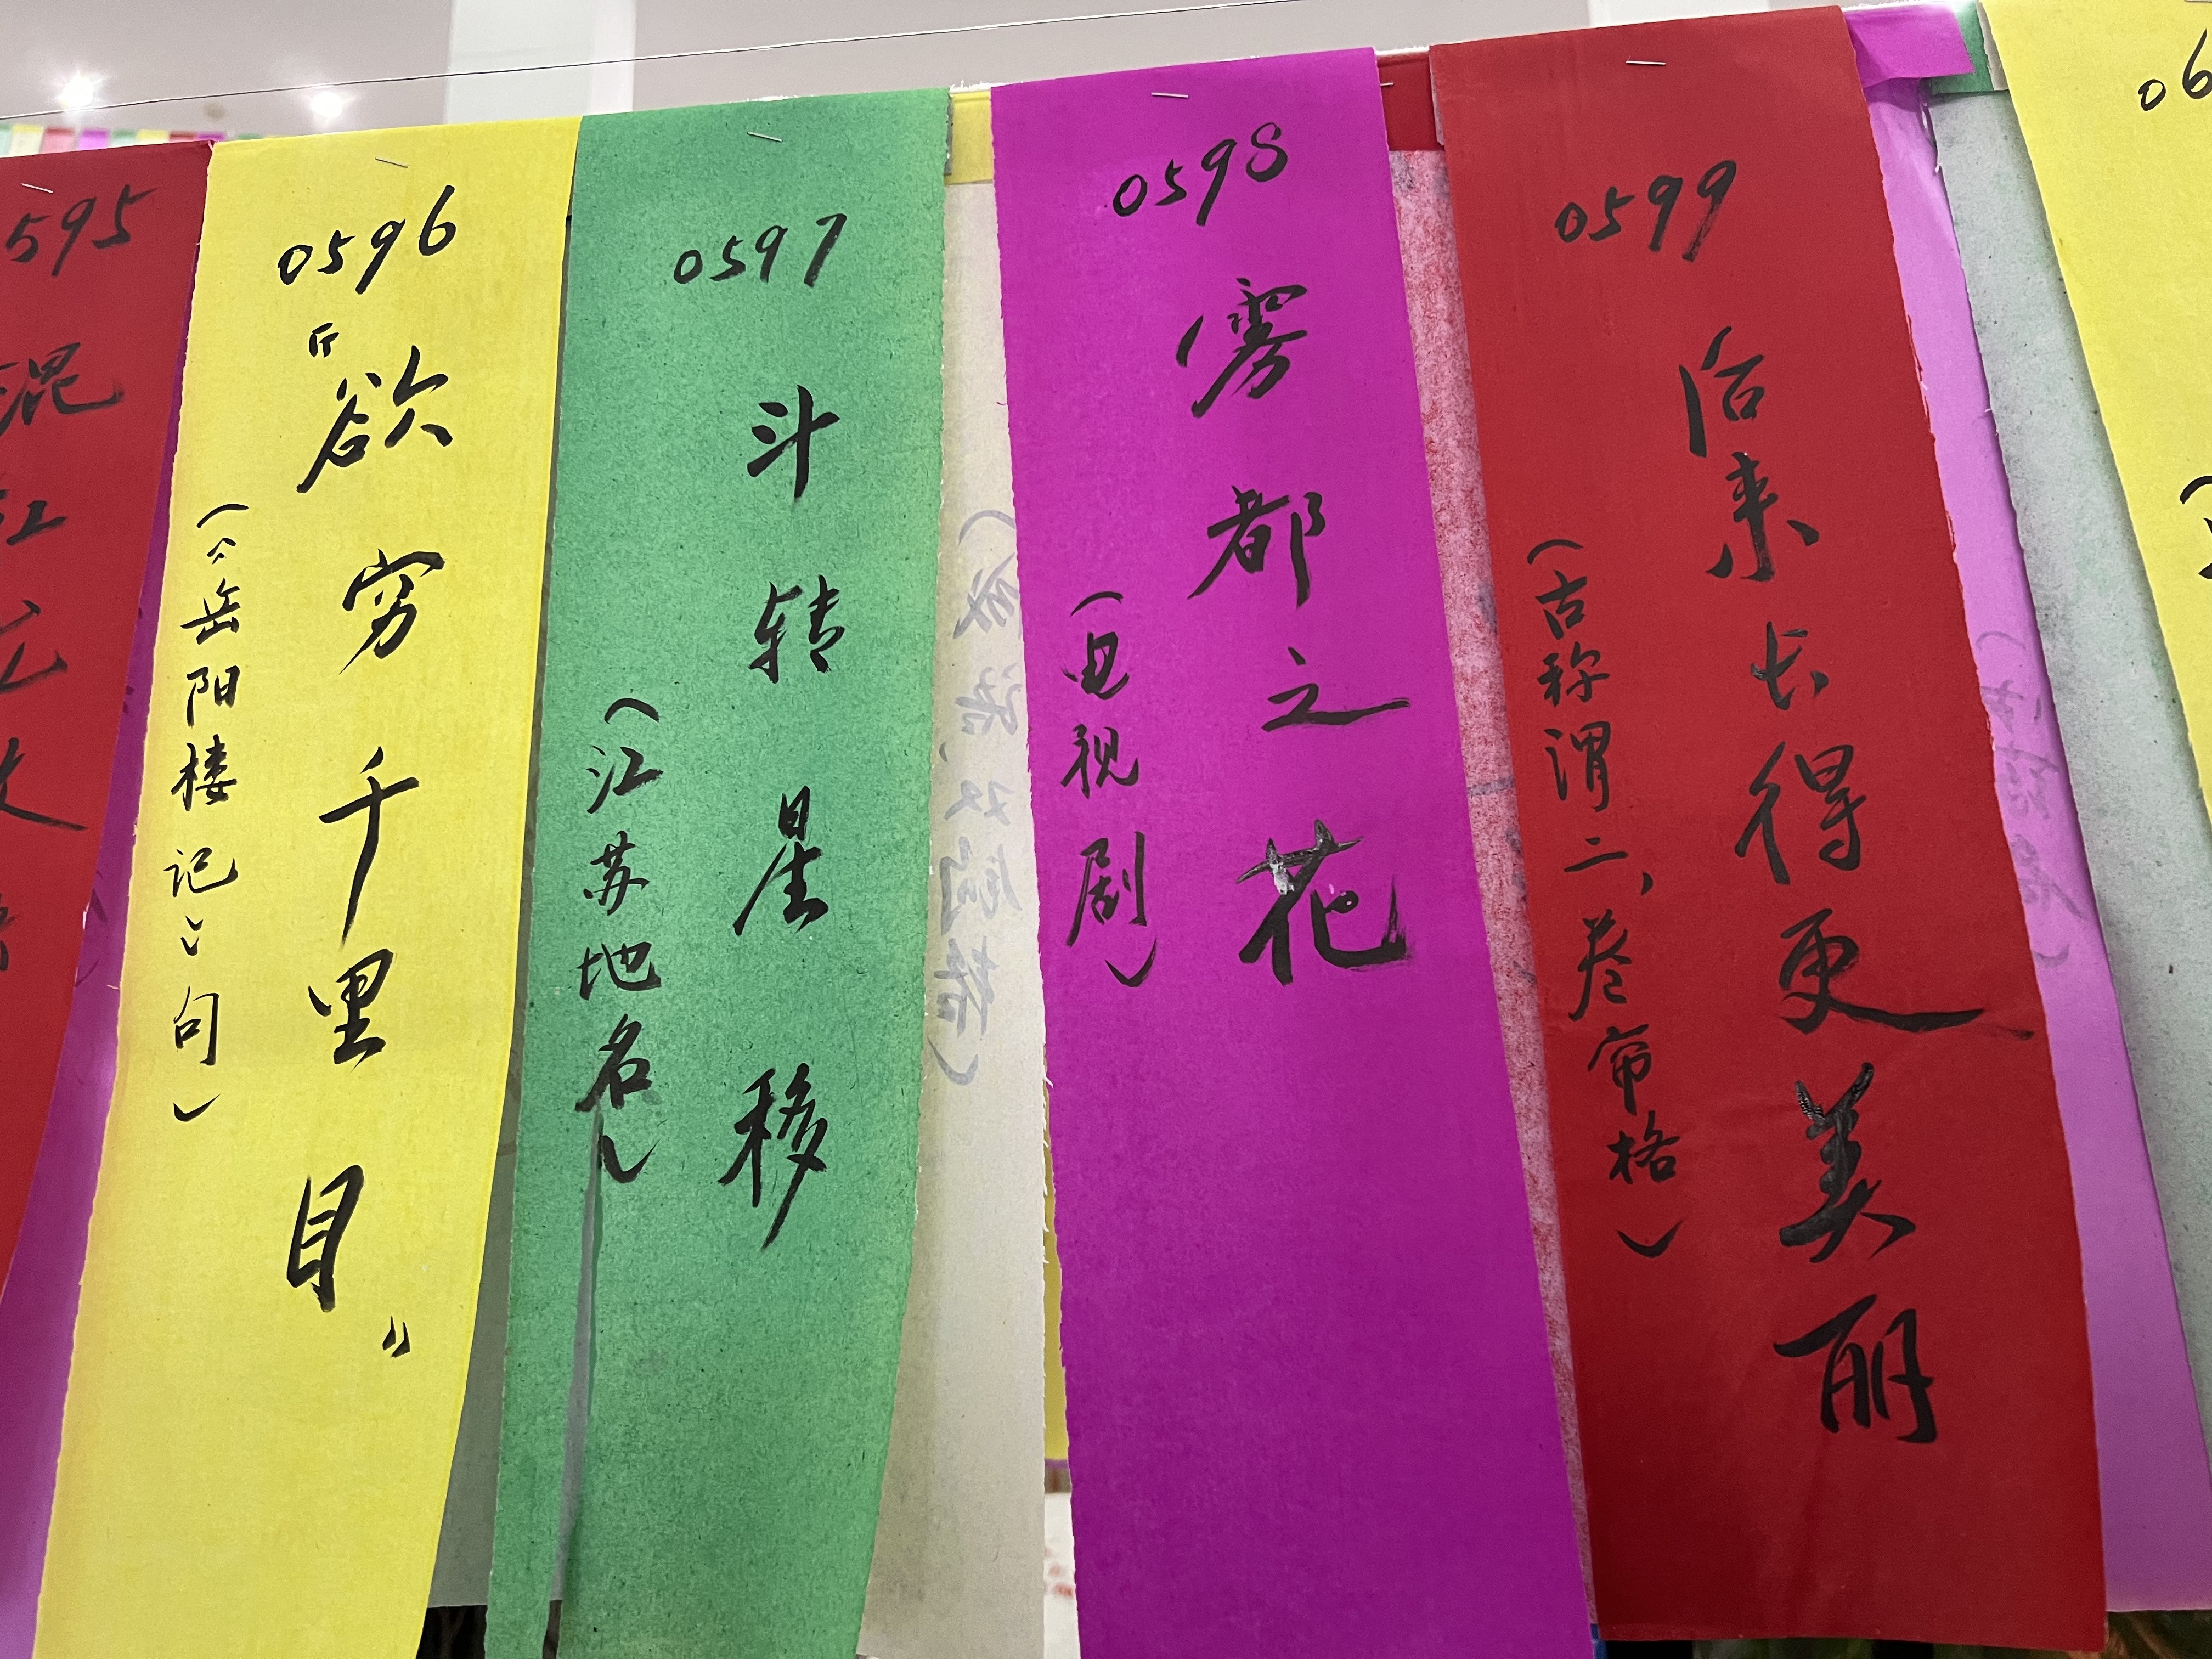 595
混
0596
“欲穷千里目”
（《岳阳楼记》句）
0597
斗转星移
（江苏地名）
0598
雾都之花
（电视剧）
0599
后来长得更美丽
（古称谓二、卷帘格）
06